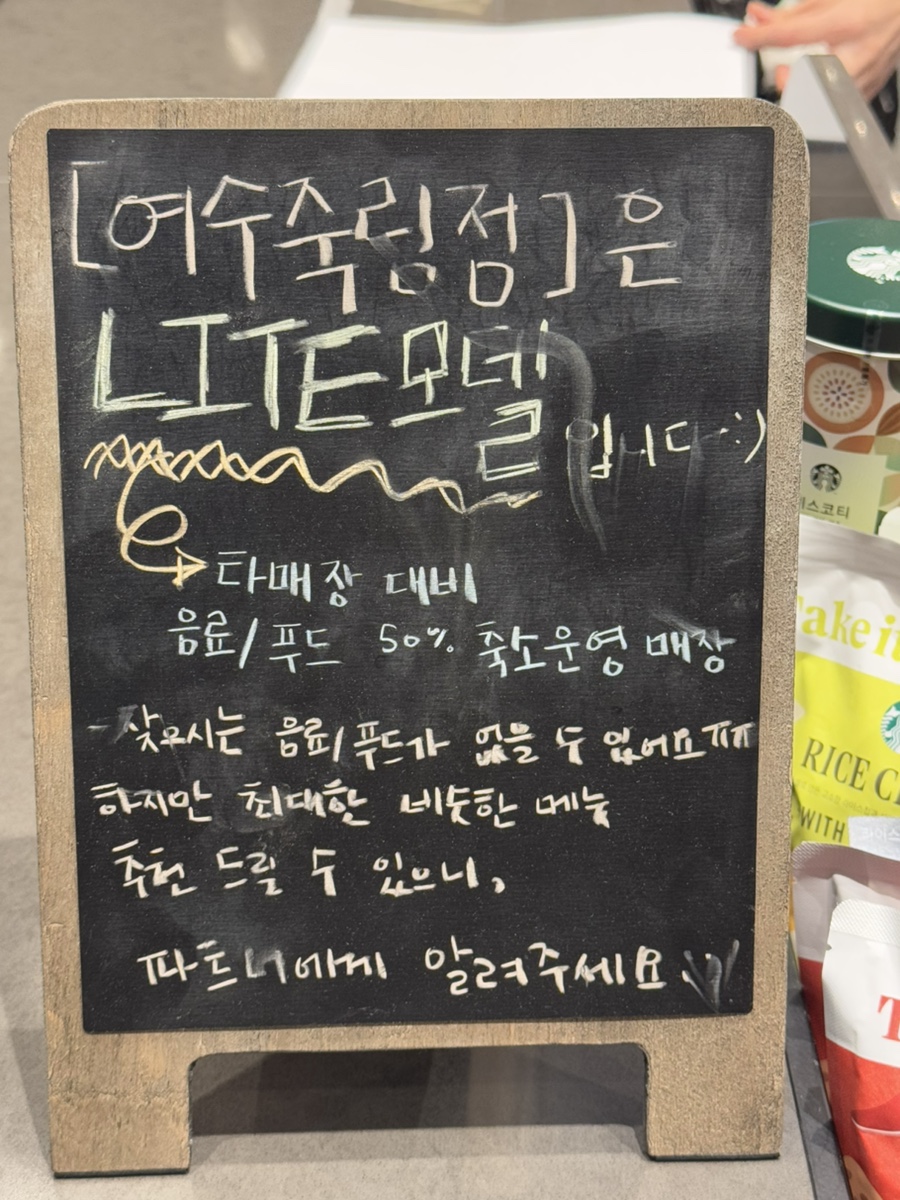 [여수죽림점]은
LITE모델
입니다 :)
타매장 대비
음료/푸드 50% 축소운영 매장
- 찾으시는 음료/푸드가 없을 수 있어요ㅠㅠ
하지만 최대한 비슷한 메뉴
추천 드릴 수 있으니,
파트너에게 알려주세요..
스코티
Take it
RICE C
WITH
T